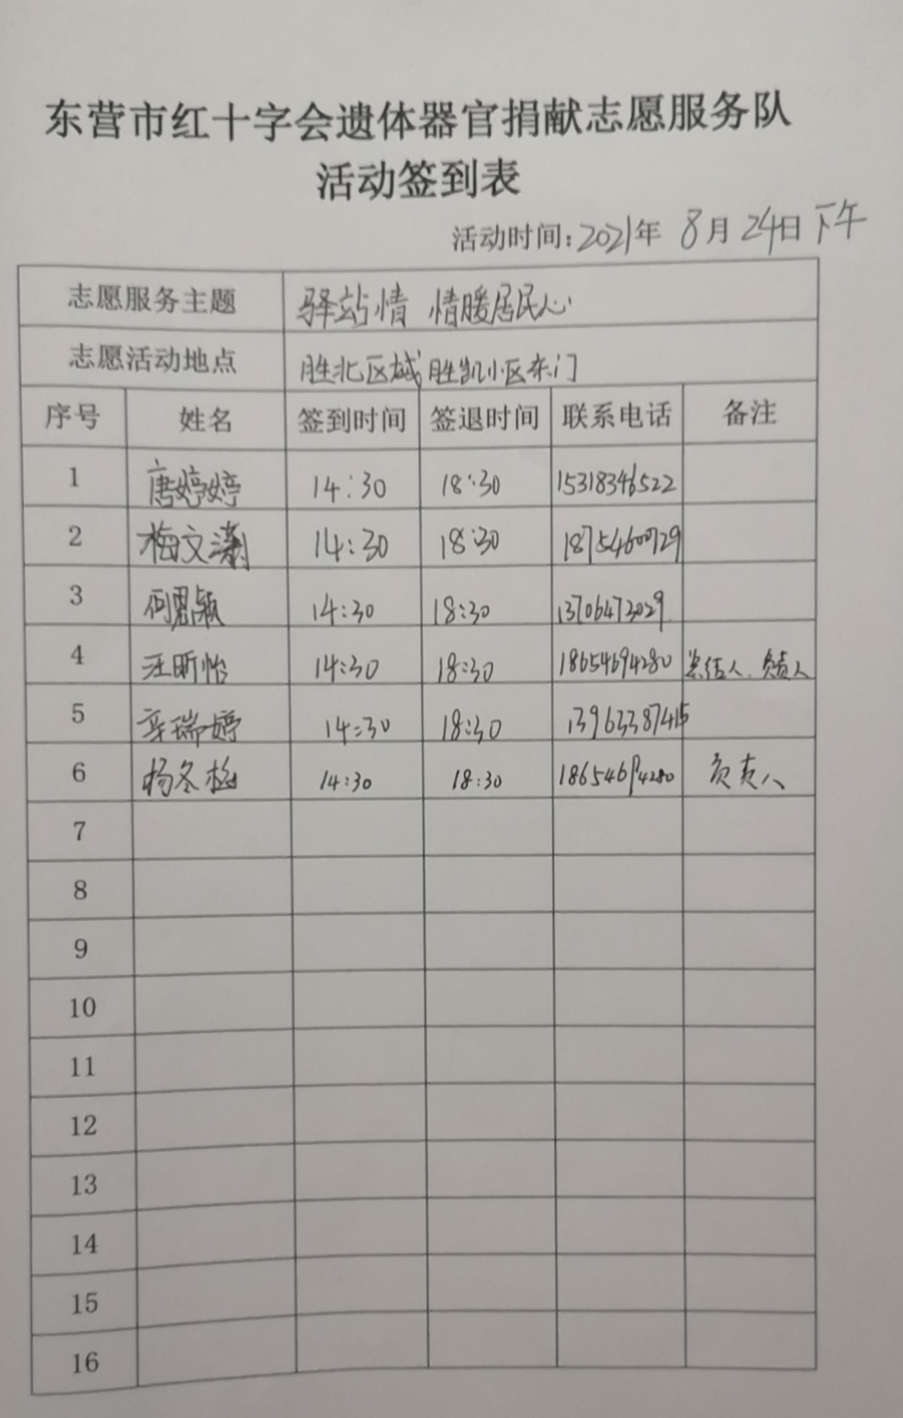 东营市红十字会遗体器官捐献志愿服务队
活动签到表
活动时间:2021年 8月24日下午
志愿服务主题 驿站情 情暖居民心
志愿活动地点 胜北区域胜凯小区东门
序号 姓名 签到时间 签退时间 联系电话 备注
1 唐婷婷 14:30 18:30 15318346522
2 梅文潇 14:30 18:30 18754600729
3 何思颖 14:30 18:30 13706473029
4 汪昕怡 14:30 18:30 18654694280 总结人、负责人
5 辛瑞婷 14:30 18:30 13963387415
6 杨冬梅 14:30 18:30 18654694280 负责人
7
8
9
10
11
12
13
14
15
16